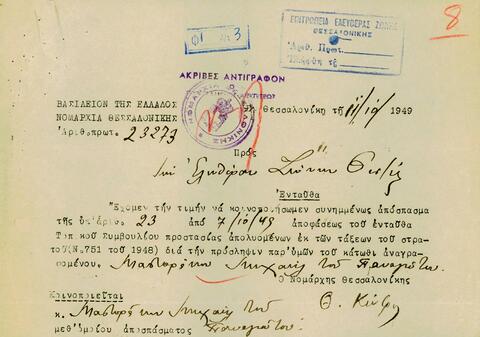 8
Φ1 3
ΕΠΙΤΡΟΠΕΙΑ ΕΛΕΥΘΕΡΑΣ ΖΩΝΗΣ
ΘΕΣΣΑΛΟΝΙΚΗΣ
Ἀριθ. Πρωτ.
ΑΚΡΙΒΕΣ ΑΝΤΙΓΡΑΦΟΝ
ΒΑΣΙΛΕΙΟΝ ΤΗΣ ΕΛΛΑΔΟΣ
ΝΟΜΑΡΧΙΑ ΘΕΣΣΑΛΟΝΙΚΗΣ
Ἀριθ.πρωτ. 23273
Θεσσαλονίκη τῇ 11/10/ 1949
Πρός
τὴν Ἐλευθέραν Ζώνην Θεσ/κης
Ἐνταῦθα
Ἔχομεν τήν τιμήν νά κοινοποιήσωμεν συνημμένως ἀπόσπασμα
τῆς ὑπ'ἀριθμ. 23 ἀπό 7/10/49 ἀποφάσεως τοῦ ἐνταῦθα
Τοπικοῦ Συμβουλίου προστασίας ἀπολυομένων ἐκ τῶν τάξεων τοῦ στρα-
τοῦ(Ν.751 τοῦ 1948) διά τήν πρόσληψιν παρ'ὑμῶν τοῦ κάτωθι ἀναγρα-
φομένου. Μιχαήλ τοῦ Παναγιώτου
Ὁ Νομάρχης Θεσσαλονίκης
Κοινοποιεῖται
κ. Μιχαήλ τοῦ
Παναγιώτου
μεθ'ὁμοίου ἀποσπάσματος